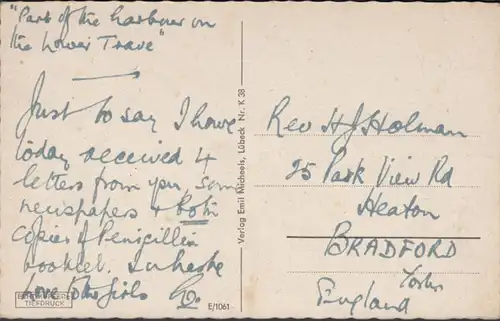 "Part of the harbour on
the Lower Trave"
Just to say I have
today received 4
letters from you, some
newspapers & both
copies of Penicillin
booklet. In haste
Love to the girls
TIEFDRUCK
E/1061
Verlag Emil Michaels, Lübeck Nr. K 38
Rev H J Holman
25 Park View Rd
Heaton
BRADFORD
Yorks
England